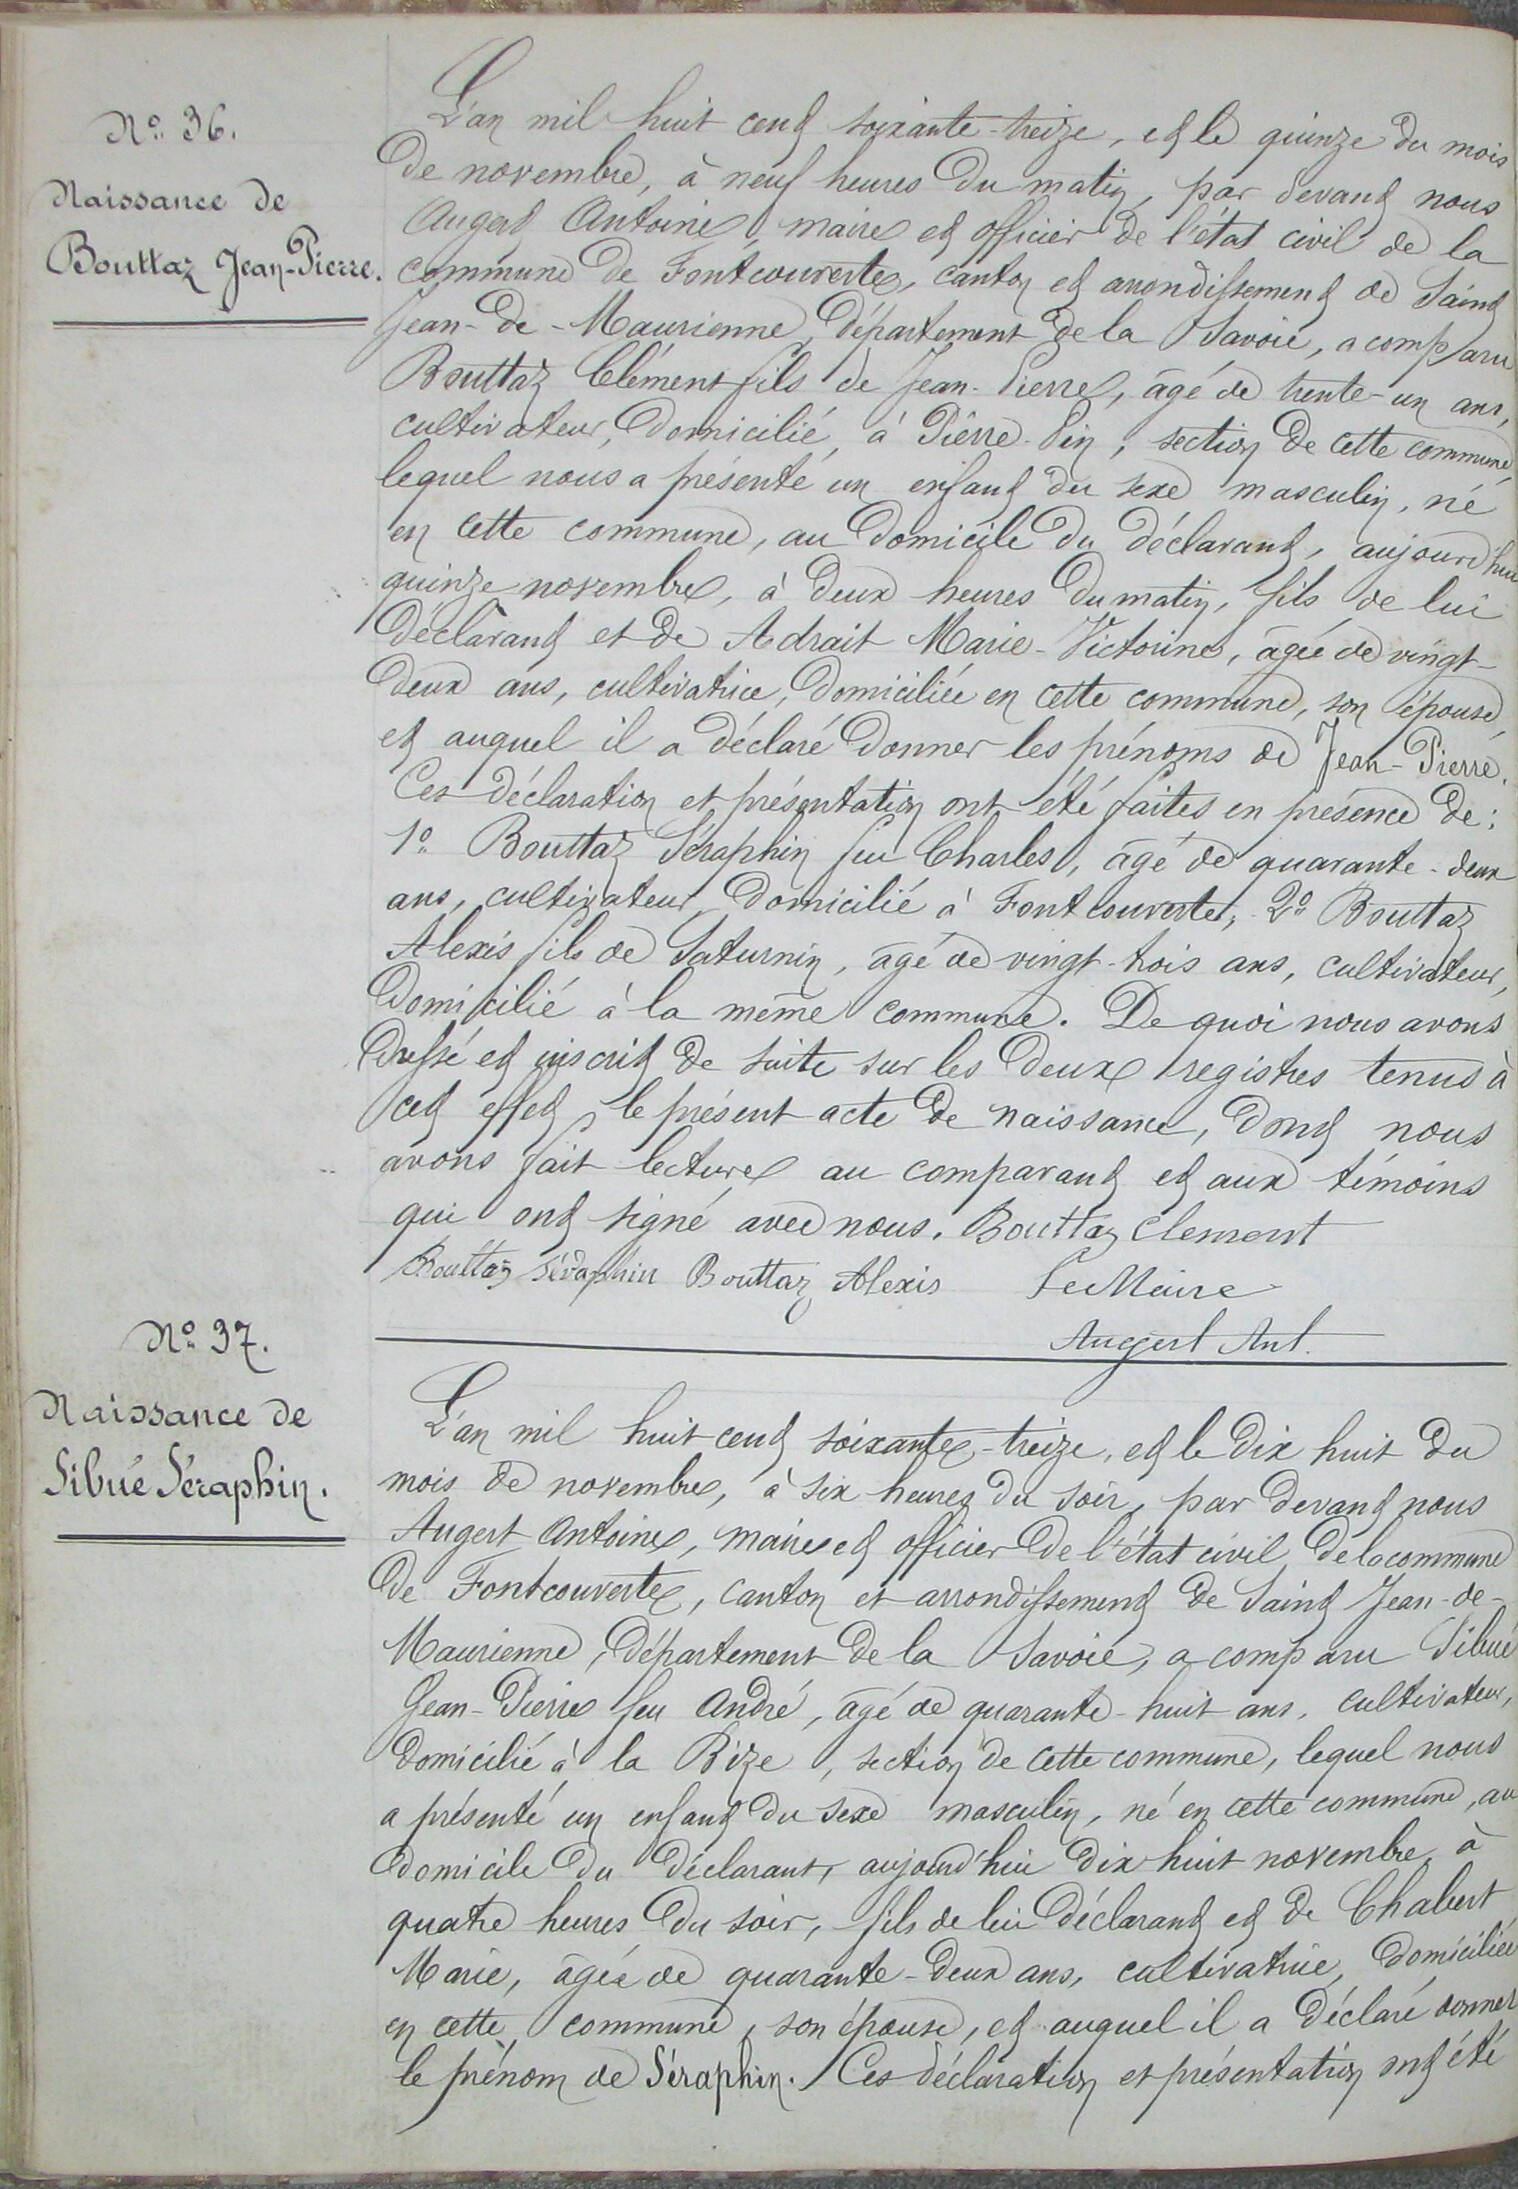 Nº 36.
Naissance de
Bouttaz Jean-Pierre.
L'an mil huit cent soixante-treize, et le quinze du mois
de novembre, à neuf heures du matin, par devant nous
Augert Antoine, maire et officier de l'état civil de la
commune de Fontcouverte, canton et arrondissement de Saint
Jean-de-Maurienne, département de la Savoie, a comparu
Bouttaz Clément fils de Jean-Pierre, âgé de trente-un ans,
cultivateur, domicilié à Pierre-Pin, section de cette commune,
lequel nous a présenté un enfant du sexe masculin, né
en cette commune, au domicile du déclarant, aujourd'hui
quinze novembre, à deux heures du matin, fils de lui
déclarant et de Adrait Marie-Victorine, âgée de vingt-
deux ans, cultivatrice, domiciliée en cette commune, son épouse,
et auquel il a déclaré donner les prénoms de Jean-Pierre.
Ces déclaration et présentation ont été faites en présence de:
1º Bouttaz Séraphin feu Charles, âgé de quarante-deux
ans, cultivateur, domicilié à Fontcouverte, 2º Bouttaz
Alexis fils de Saturnin, âgé de vingt-trois ans, cultivateur,
domicilié à la même commune. De quoi nous avons
dressé et inscrit de suite sur les deux registres tenus à
cet effet, le présent acte de naissance, dont nous
avons fait lecture au comparant et aux témoins
qui ont signé avec nous. Bouttaz Clement
Bouttaz Séraphin Bouttaz Alexis Le Maire
Augert Ant.
Nº 37.
Naissance de
Sibué Séraphin.
L'an mil huit cent soixante-treize, et le dix huit du
mois de novembre, à six heures du soir, par devant nous
Augert Antoine, maire et officier de l'état civil de la commune
de Fontcouverte, canton et arrondissement de Saint Jean-de-
Maurienne, département de la Savoie, a comparu Sibué
Jean-Pierre feu André, âgé de quarante-huit ans, cultivateur,
domicilié à la Bize, section de cette commune, lequel nous
a présenté un enfant du sexe masculin, né en cette commune, au
domicile du déclarant, aujourd'hui dix huit novembre, à
quatre heures du soir, fils de lui déclarant et de Chabert
Marie, âgée de quarante-deux ans, cultivatrice, domiciliée
en cette commune, son épouse, et auquel il a déclaré donner
le prénom de Séraphin. Ces déclaration et présentation ont été